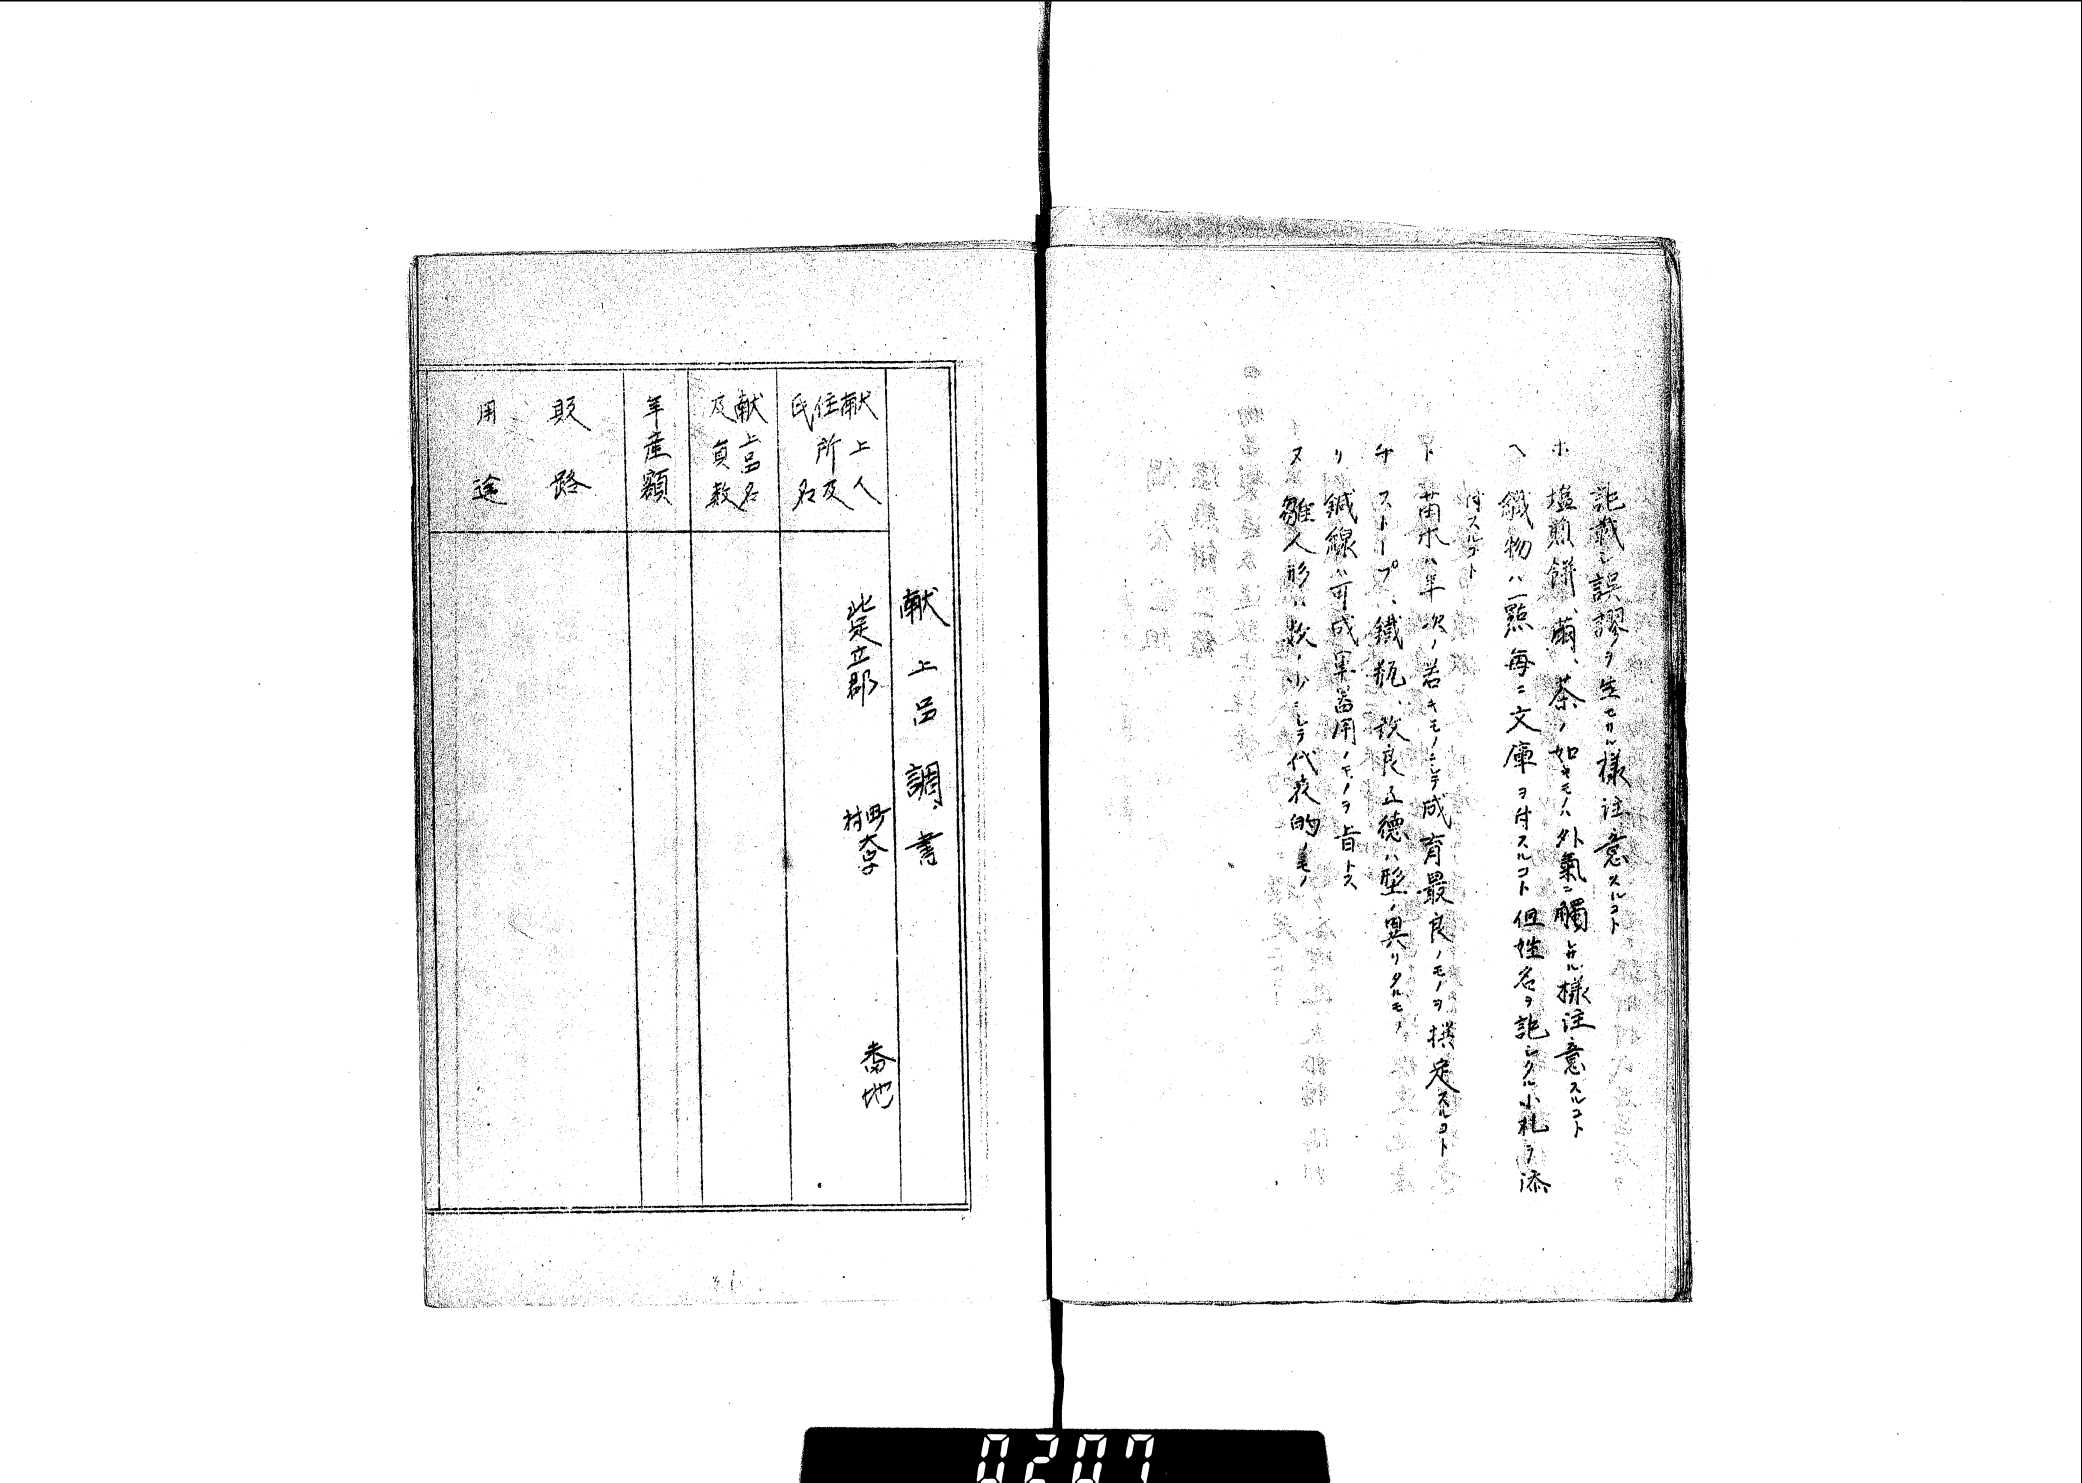 記載ニ誤謬ヲ生セサル樣注意スルコト
ホ 塩煎餅、繭、茶ノ如キモノハ外氣ニ觸レサル樣注意スルコト
ヘ 織物ハ一點每ニ文庫ヲ付スルコト但姓名ヲ記シタル小札ヲ添
付スルコト
ト 苗木ハ年次ノ若キモノニシテ成育最良ノモノヲ撰定スルコト
チ ストーブ、鐵瓶、改良五德ハ型ノ異リタルモノ
リ 鍼線ハ可成軍器用ノモノヲ旨トス
ヌ 雛人形ハ数ノ少ニシテ代表的ノモノ
献上品調書
献上人
住所及
氏名
北足立郡 町村大字 番地
献上品名
及員数
年産額
販路
用途
0207